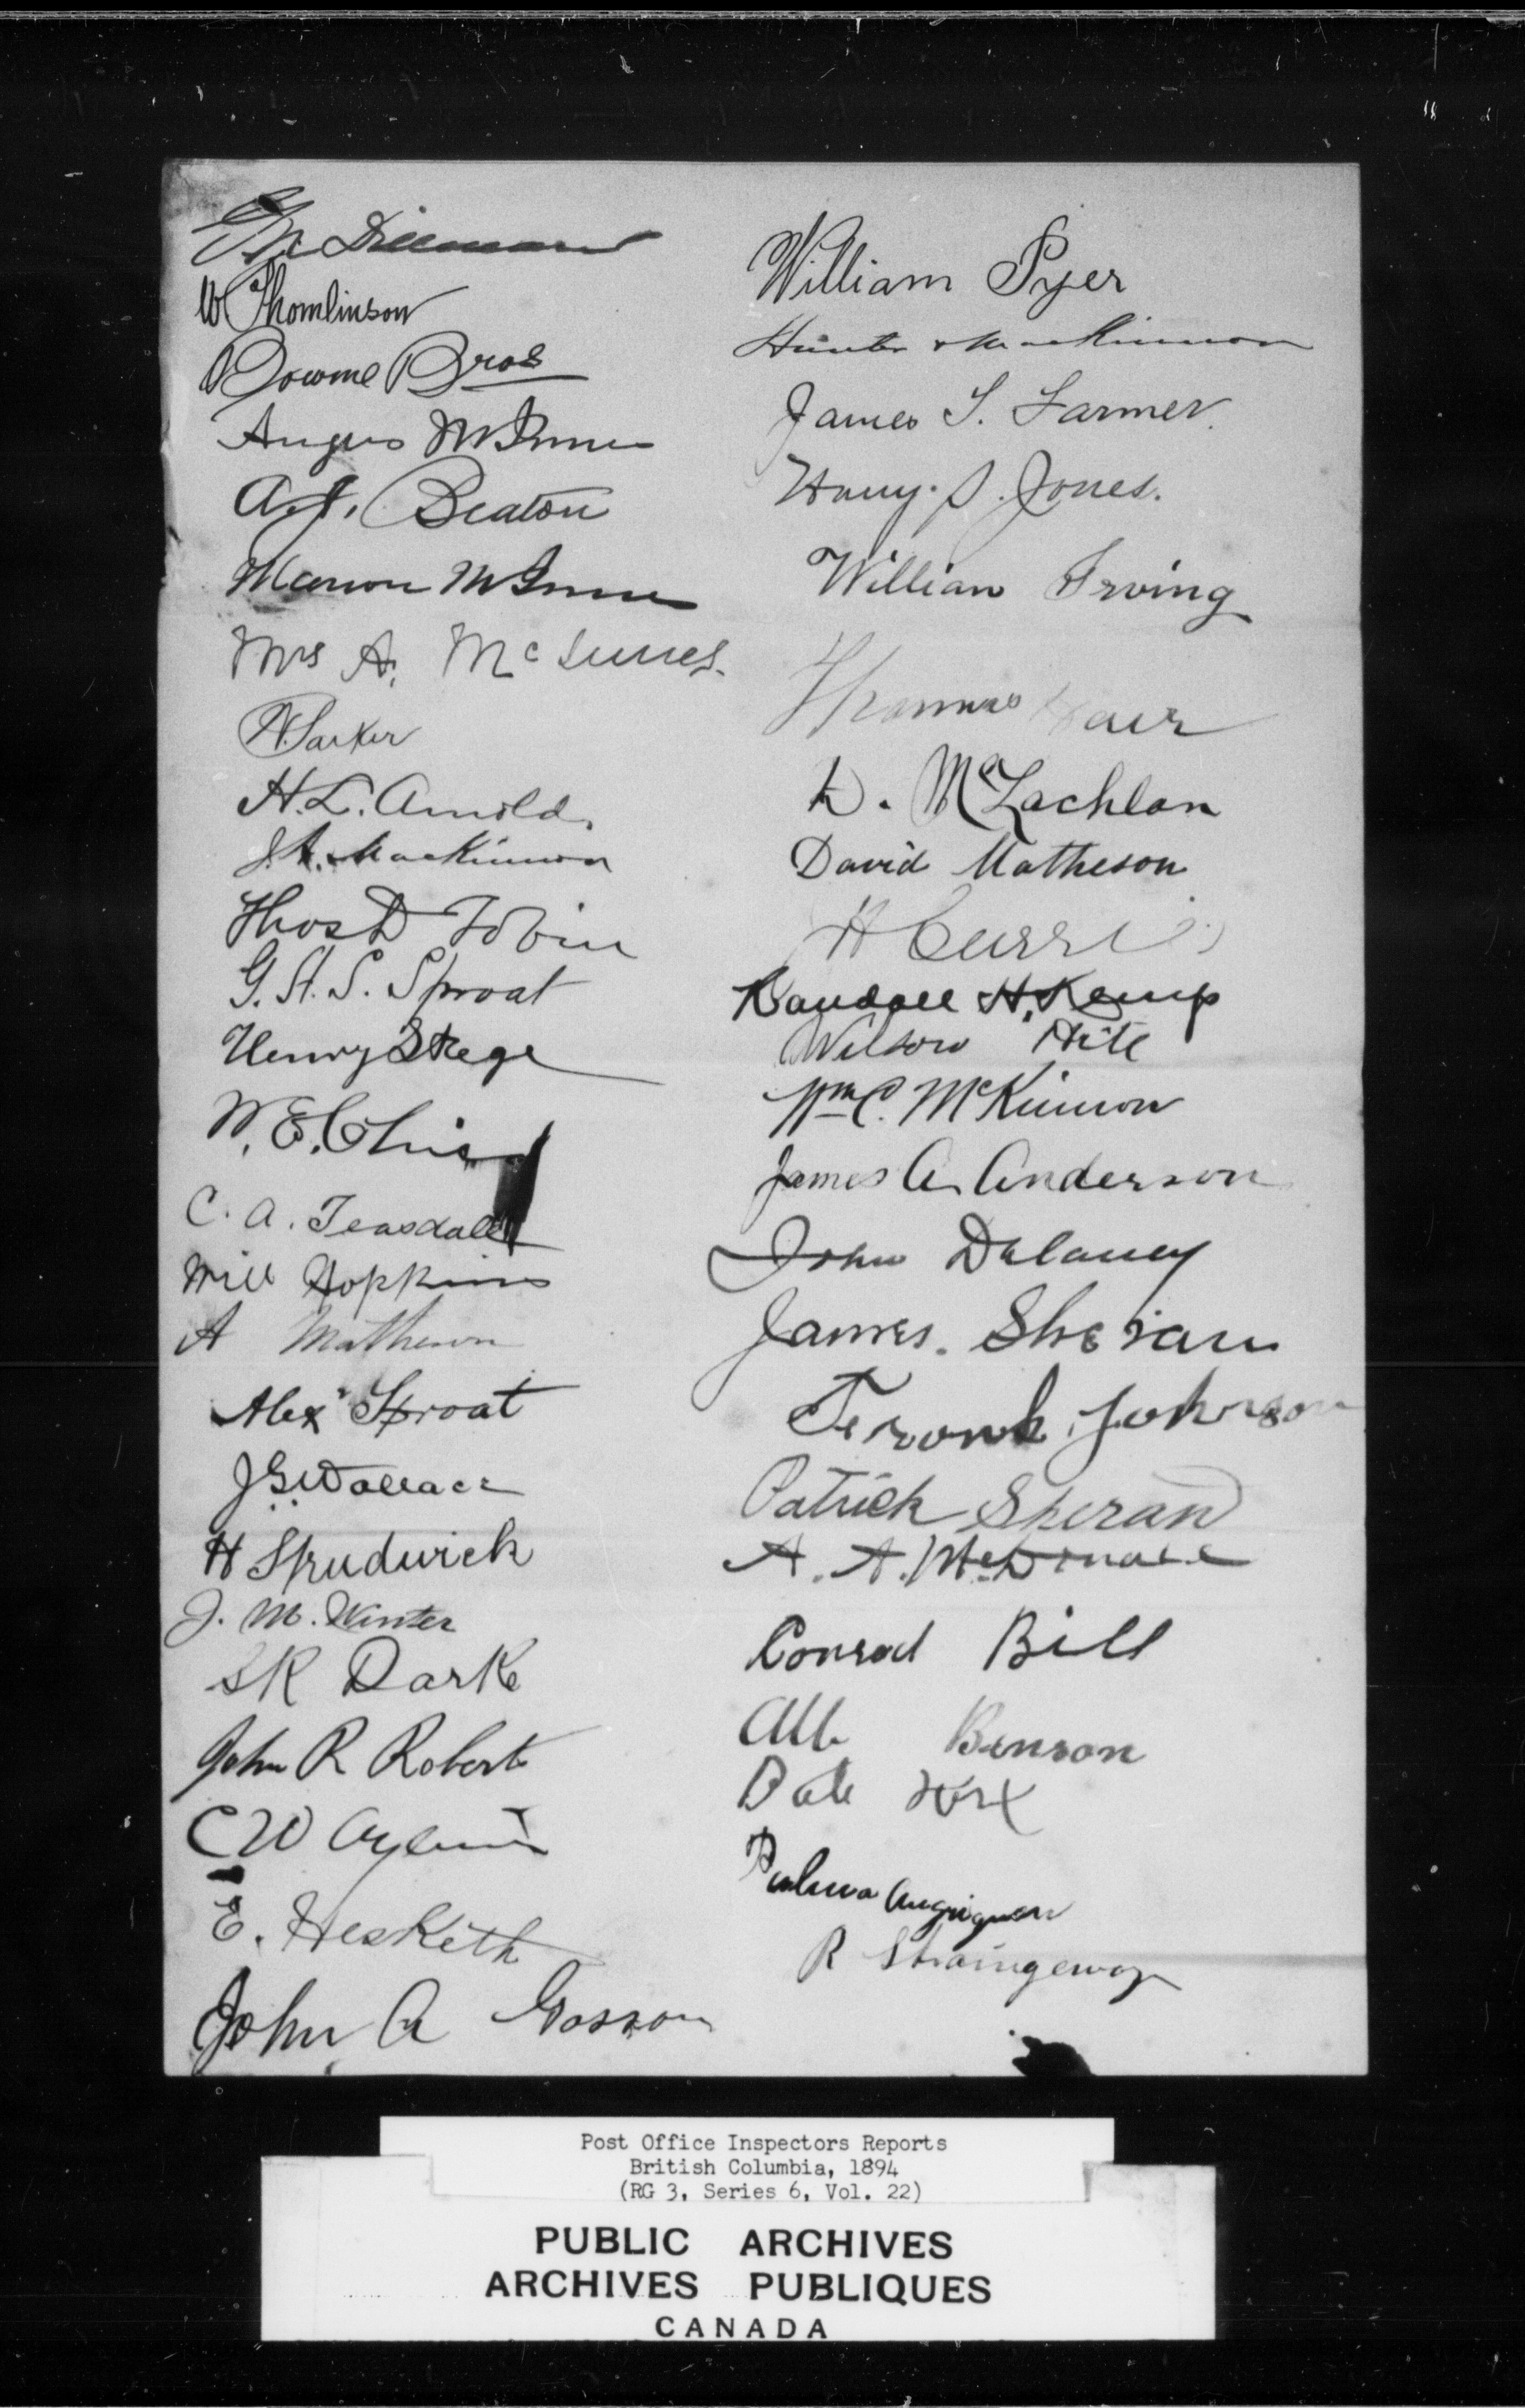 W Thomlinson
Bourne Bros
Angus McInnes
A. J. Beaton
Marion McInnes
Mrs A. McInnes.
H. L. Arnold.
J. A. MacKinnon
Thos D Tobin
G. H. S. Sproat
Henry Stege
W. E.
C. A. Teasdale
Will Hopkins
A Matheson
Alex Sproat
J G Wallace
H Strudwick
J. M. Winter
SK Darke
John R Roberts
C W Aylwin
E. Hesketh
John A
William Pyer
Hunter & MacKinnon
James S. Farmer.
Harry. S. Jones.
William Irving
Thomas
D. McLachlan
David Matheson
H Currie
Randall H. Kemp
Wilson Hite
Wm C. McKinnon
James A. Anderson
John Delaney
James. Sheran
Frank. Johnson
Patrick Sheran
A. A. McDonald
Conrad Bill
Alb Benson
R Straingeway
Post Office Inspectors Reports
British Columbia, 1894
(RG 3, Series 6, Vol. 22)
PUBLIC ARCHIVES
ARCHIVES PUBLIQUES
CANADA